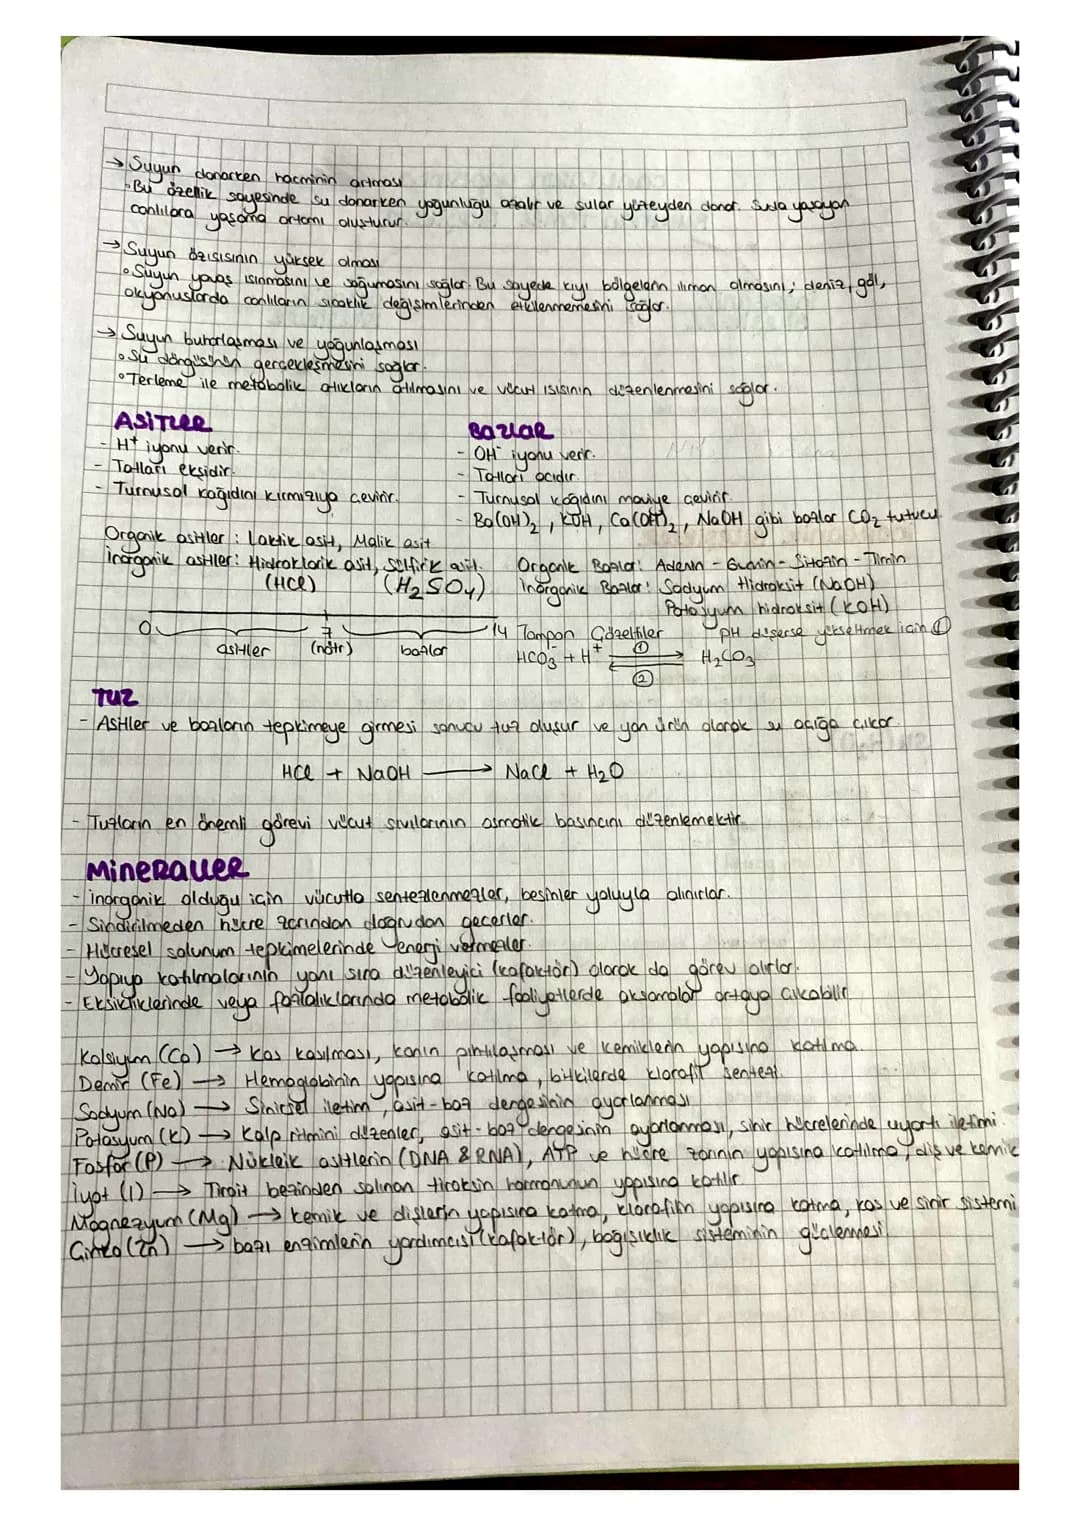 → Suyun donarken hacminin artması
-Bu özellik sayesinde su donarken yoğunluğu azalır ve sular yüzeyden donar. Suda yaşayan
canlılara yaşama ortamı oluşturur.
→ Suyun özısısının yüksek olması
• Suyun yavaş ısınmasını ve soğumasını sağlar. Bu sayede kıyı bölgelerin ılıman olmasını; deniz, göl,
okyanuslarda canlıların sıcaklık değişimlerinden etkilenmemesini sağlar.
→ Suyun buharlaşması ve yoğunlaşması
• Su döngüsünün gerçekleşmesini sağlar.
• Terleme ile metabolik atıkların atılmasını ve vücut ısısının düzenlenmesini sağlar.
ASİTLER
- H⁺ iyonu verir.
- Tatları ekşidir.
- Turnusol kağıdını kırmızıya çevirir.
Organik asitler : Laktik asit, Malik asit
İnorganik asitler: Hidroklorik asit, Sülfirik asit.
(HCl) (H₂SO₄)
BAZLAR
- OH⁻ iyonu verir.
- Tatları acıdır.
- Turnusol kağıdını maviye çevirir.
- Ba(OH)₂, KOH, Ca(OH)₂, NaOH gibi bazlar CO₂ tutucu
Organik Bazlar: Adenin - Guanin - Sitozin - Timin
İnorganik Bazlar: Sodyum Hidroksit (NaOH)
Potasyum hidroksit (KOH)
0 7 14
asitler (nötr) bazlar
Tampon Çözeltiler PH düşerse yükseltmek için ①
HCO₃⁻ + H⁺ ① ⇌ ② H₂CO₃
TUZ
- Asitler ve bazların tepkimeye girmesi sonucu tuz oluşur ve yan ürün olarak su açığa çıkar.
HCl + NaOH → NaCl + H₂O
- Tuzların en önemli görevi vücut sıvılarının osmotik basıncını düzenlemektir.
MİNERALLER
- İnorganik olduğu için vücutta sentezlenmezler, besinler yoluyla alınırlar.
- Sindirilmeden hücre zarından doğrudan geçerler.
- Hücresel solunum tepkimelerinde enerji vermezler.
- Yapıya katılmalarının yanı sıra düzenleyici (kofaktör) olarak da görev alırlar.
- Eksikliklerinde veya fazlalıklarında metabolik faaliyetlerde aksamalar ortaya çıkabilir
Kalsiyum (Ca) → Kas kasılması, kanın pıhtılaşması ve kemiklerin yapısına katılma.
Demir (Fe) → Hemoglobinin yapısına katılma, bitkilerde klorofil sentezi.
Sodyum (Na) → Sinirsel iletim, asit-baz dengesinin ayarlanması
Potasyum (K) → Kalp ritmini düzenler, asit-baz dengesinin ayarlanması, sinir hücrelerinde uyartı iletimi.
Fosfor (P) → Nükleik asitlerin (DNA & RNA), ATP ve hücre zarının yapısına katılma, diş ve kemik
İyot (I) → Tiroit bezinden salınan tiroksin hormonunun yapısına katılır.
Magnezyum (Mg) → Kemik ve dişlerin yapısına katma, klorofilin yapısına katma, kas ve sinir sistemi
Çinko (Zn) → bazı enzimlerin yardımcısı (kofaktör), bağışıklık sisteminin güçlenmesi